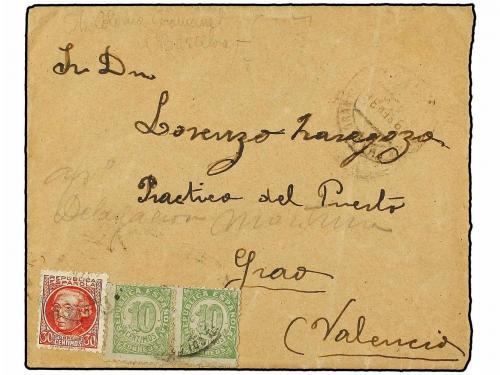 Sr Dn
Lorenzo Zaragoza
Practico del Puerto
Delegacion Maritima
Grao
(Valencia)
REPUBLICA
ESPAÑOLA
30 CENTIMOS 30
10
CENTIMOS
CORREOS
10
CENTIMOS
CORREOS